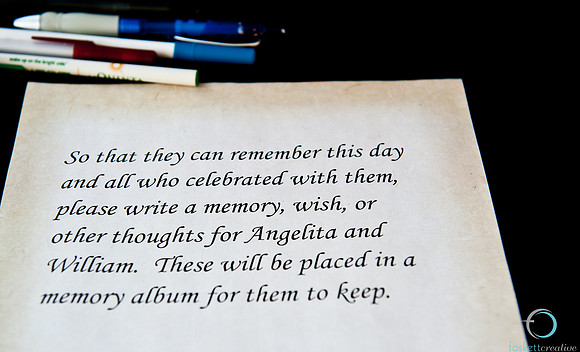 wake up on the bright side
So that they can remember this day
and all who celebrated with them,
please write a memory, wish, or
other thoughts for Angelita and
William. These will be placed in a
memory album for them to keep.
creative